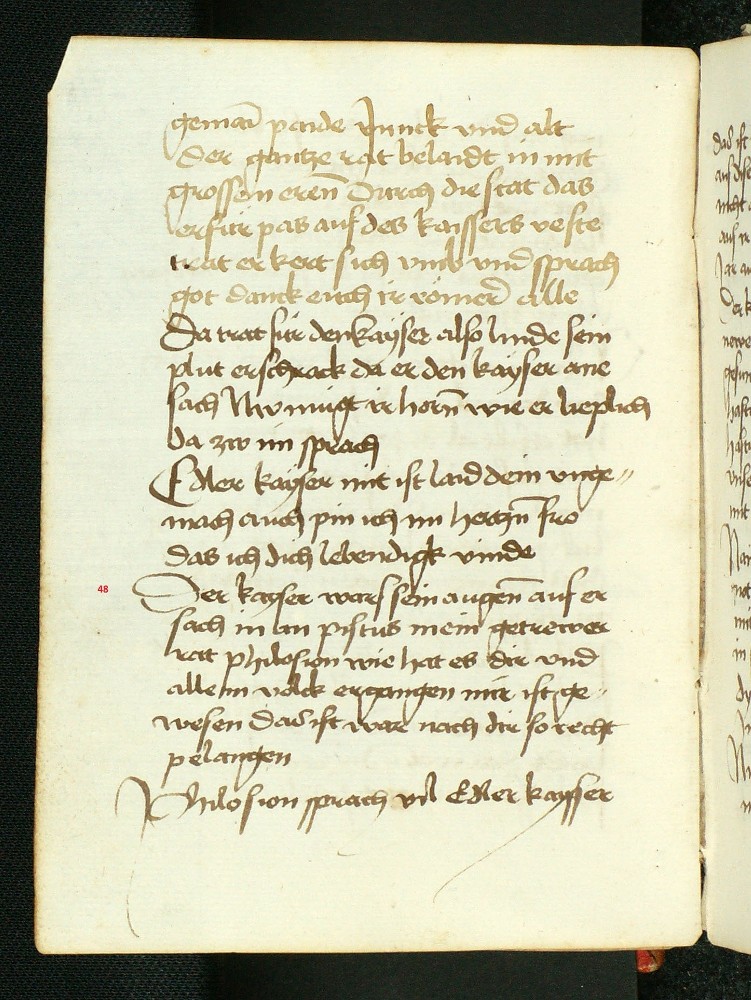 gemaī paide Junck vnd alt
Der gantze rat belaidt in mit
grossen erēn Durch die stat das
erfür pas auf des kaissers veste
trat er kert sich vmb vnd sprach
got danck euch ir römer alle
Da trat für den kayser also linde sein
plut erschrack da er den kayser ane
sach Nw mügt ir horn̄ wie er lieplich
da zw im sprach
Edler kayser mir ist laid dein vnge〃
mach auch pin ich im hertzn̄ fro
das ich dich lebendigk vinde
48
Der kayser warf sein augen̄ auf er
sach in an pistus mein getrewer
rat philosion wie hat es dir vnd
allem volck ergangen mir ist ge〃
wesen das ist war nach dir so recht
pelangen
Philosion sprach vil Edler kaysser